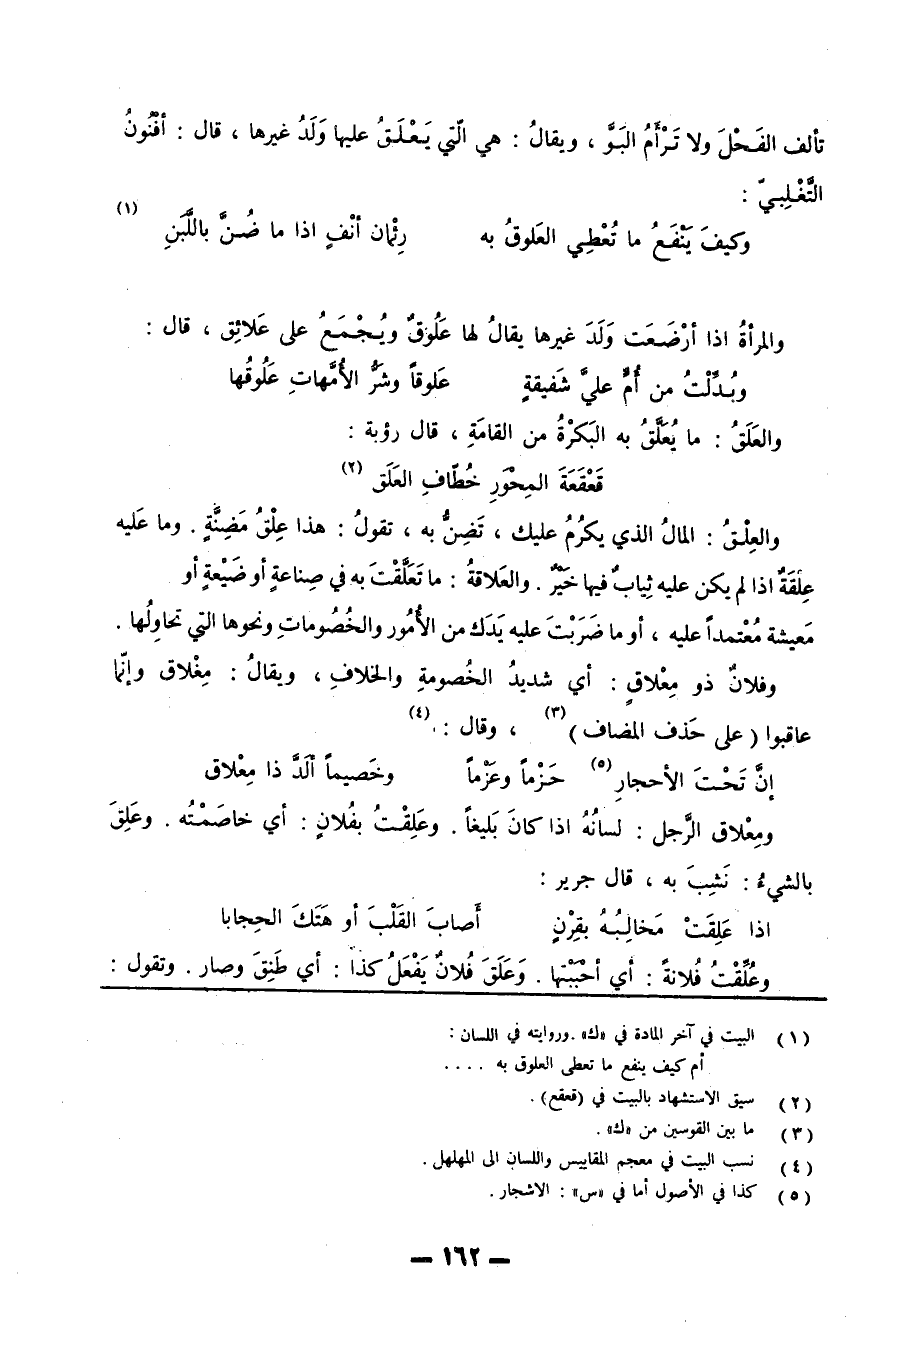 تألف الفَحْلَ ولا تَرْأَمُ البَوَّ ، ويقالُ : هي الّتي يَعْلَقُ عليها وَلَدُ غيرها ، قال : أفْنُونُ
التَّغْلِبيّ :
وكيفَ يَنْفَعُ ما تُعْطِي العَلوقُ به رِئْمان أنْفٍ اذا ما ضُنَّ باللَّبَنِ (١)
والمرأةُ اذا أرْضَعَت وَلَدَ غيرها يقالُ لها عَلُوقٌ ويُجْمَعُ على عَلائِق ، قال :
وبُدِّلْتُ من أُمٍّ عليَّ شَفيقةٍ عَلوقاً وشَرُّ الأُمَّهاتِ عَلُوقُها
والعَلَقُ : ما يُعَلَّقُ به البَكرْةُ من القامَةِ ، قال رؤبة :
قَعْقَعَةَ المِحْوَرِ خُطّافِ العَلَق (٢)
والعِلْقُ : المالُ الذي يكرُمُ عليك ، تَضِنُّ به ، تقولُ : هذا عِلْقُ مَضِنَّةٍ . وما عَليه
عِلْقَةٌ اذا لم يكن عليه ثِيابٌ فيها خَيْرٌ . والعَلاقةُ : ما تَعَلَّقْتَ به في صِناعةٍ أو ضَيْعةٍ أو
مَعيشة مُعْتمداً عليه ، أو ما ضَرَبْتَ عليه يَدَك من الأُمُور والخُصُوماتِ ونحوها التي تحاوِلُها .
وفلانٌ ذو مِعْلاقٍ : أي شديدُ الخُصومةِ والخلافِ ، ويقالُ : مِغْلاق وإنّما
عاقبوا (على حَذف المضاف) (٣) ، وقال : (٤)
إنَّ تَحْتَ الأحجارِ (٥) حَزْماً وعَزْماً وخَصيماً ألَدَّ ذا مِعْلاق
ومِعْلاق الرَّجل : لسانُهُ اذا كانَ بَليغاً . وعَلِقْتُ بفُلانٍ : أي خاصَمْتُه . وعَلِقَ
بالشيءُ : نَشِبَ به ، قال جرير :
اذا عَلِقَتْ مَخالِبُهُ بقِرْنٍ أَصابَ القَلْبَ أو هَتَكَ الحِجابا
وعُلِّقْتُ فُلانةً : أي أحْبَبْتها . وَعَلَقَ فُلانٌ يَفْعَلُ كذا : أي طَنِقَ وصار . وتقول :
(١) البيت في آخر المادة في «ك» . وروايته في اللسان :
أم كيف ينفع ما تعطى العلوق به . . . .
(٢) سيق الاستشهاد بالبيت في (قعقع) .
(٣) ما بين القوسين من «ك» .
(٤) نسب البيت في معجم المقاييس واللسان الى المهلهل .
(٥) كذا في الأصول أما في «س» : الاشجار .
— ١٦٢ —